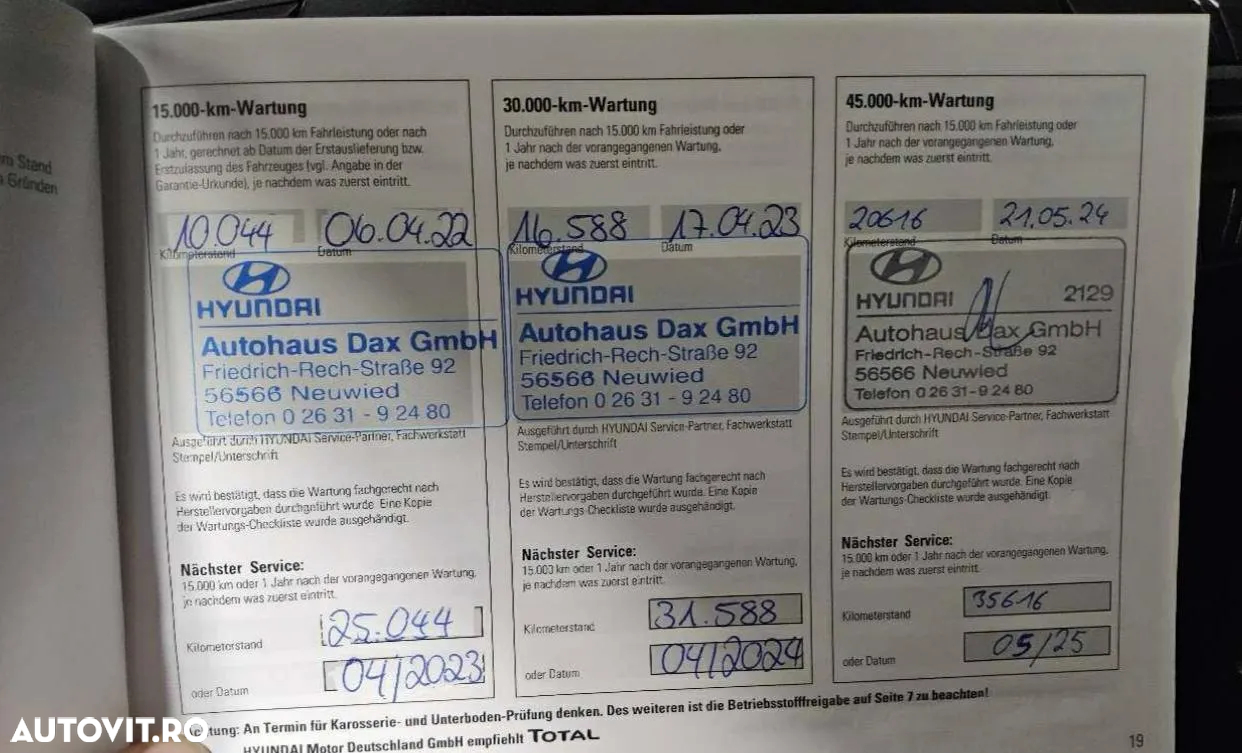 m Stand
Gründen
15.000-km-Wartung
Durchzuführen nach 15.000 km Fahrleistung oder nach
1 Jahr, gerechnet ab Datum der Erstauslieferung bzw.
Erstzulassung des Fahrzeuges (vgl. Angabe in der
Garantie-Urkunde), je nachdem was zuerst eintritt.
10.044 06.04.22
Kilometerstand Datum
HYUNDAI
Autohaus Dax GmbH
Friedrich-Rech-Straße 92
56566 Neuwied
Telefon 0 26 31 - 9 24 80
Ausgeführt durch HYUNDAI Service-Partner, Fachwerkstatt
Stempel/Unterschrift
Es wird bestätigt, dass die Wartung fachgerecht nach
Herstellervorgaben durchgeführt wurde. Eine Kopie
der Wartungs-Checkliste wurde ausgehändigt.
Nächster Service:
15.000 km oder 1 Jahr nach der vorangegangenen Wartung,
je nachdem was zuerst eintritt.
Kilometerstand 25.044
oder Datum 04/2023
30.000-km-Wartung
Durchzuführen nach 15.000 km Fahrleistung oder
1 Jahr nach der vorangegangenen Wartung,
je nachdem was zuerst eintritt.
16.588 17.04.23
Kilometerstand Datum
HYUNDAI
Autohaus Dax GmbH
Friedrich-Rech-Straße 92
56566 Neuwied
Telefon 0 26 31 - 9 24 80
Ausgeführt durch HYUNDAI Service-Partner, Fachwerkstatt
Stempel/Unterschrift
Es wird bestätigt, dass die Wartung fachgerecht nach
Herstellervorgaben durchgeführt wurde. Eine Kopie
der Wartungs-Checkliste wurde ausgehändigt.
Nächster Service:
15.000 km oder 1 Jahr nach der vorangegangenen Wartung,
je nachdem was zuerst eintritt.
Kilometerstand 31.588
oder Datum 04/2024
45.000-km-Wartung
Durchzuführen nach 15.000 km Fahrleistung oder
1 Jahr nach der vorangegangenen Wartung,
je nachdem was zuerst eintritt.
20616 21.05.24
Kilometerstand Datum
HYUNDAI 2129
Autohaus Dax GmbH
Friedrich-Rech-Straße 92
56566 Neuwied
Telefon 0 26 31 - 9 24 80
Ausgeführt durch HYUNDAI Service-Partner, Fachwerkstatt
Stempel/Unterschrift
Es wird bestätigt, dass die Wartung fachgerecht nach
Herstellervorgaben durchgeführt wurde. Eine Kopie
der Wartungs-Checkliste wurde ausgehändigt.
Nächster Service:
15.000 km oder 1 Jahr nach der vorangegangenen Wartung,
je nachdem was zuerst eintritt.
Kilometerstand 35616
oder Datum 05/25
tung: An Termin für Karosserie- und Unterboden-Prüfung denken. Des weiteren ist die Betriebsstofffreigabe auf Seite 7 zu beachten!
HYUNDAI Motor Deutschland GmbH empfiehlt TOTAL
19
AUTOVIT.RO